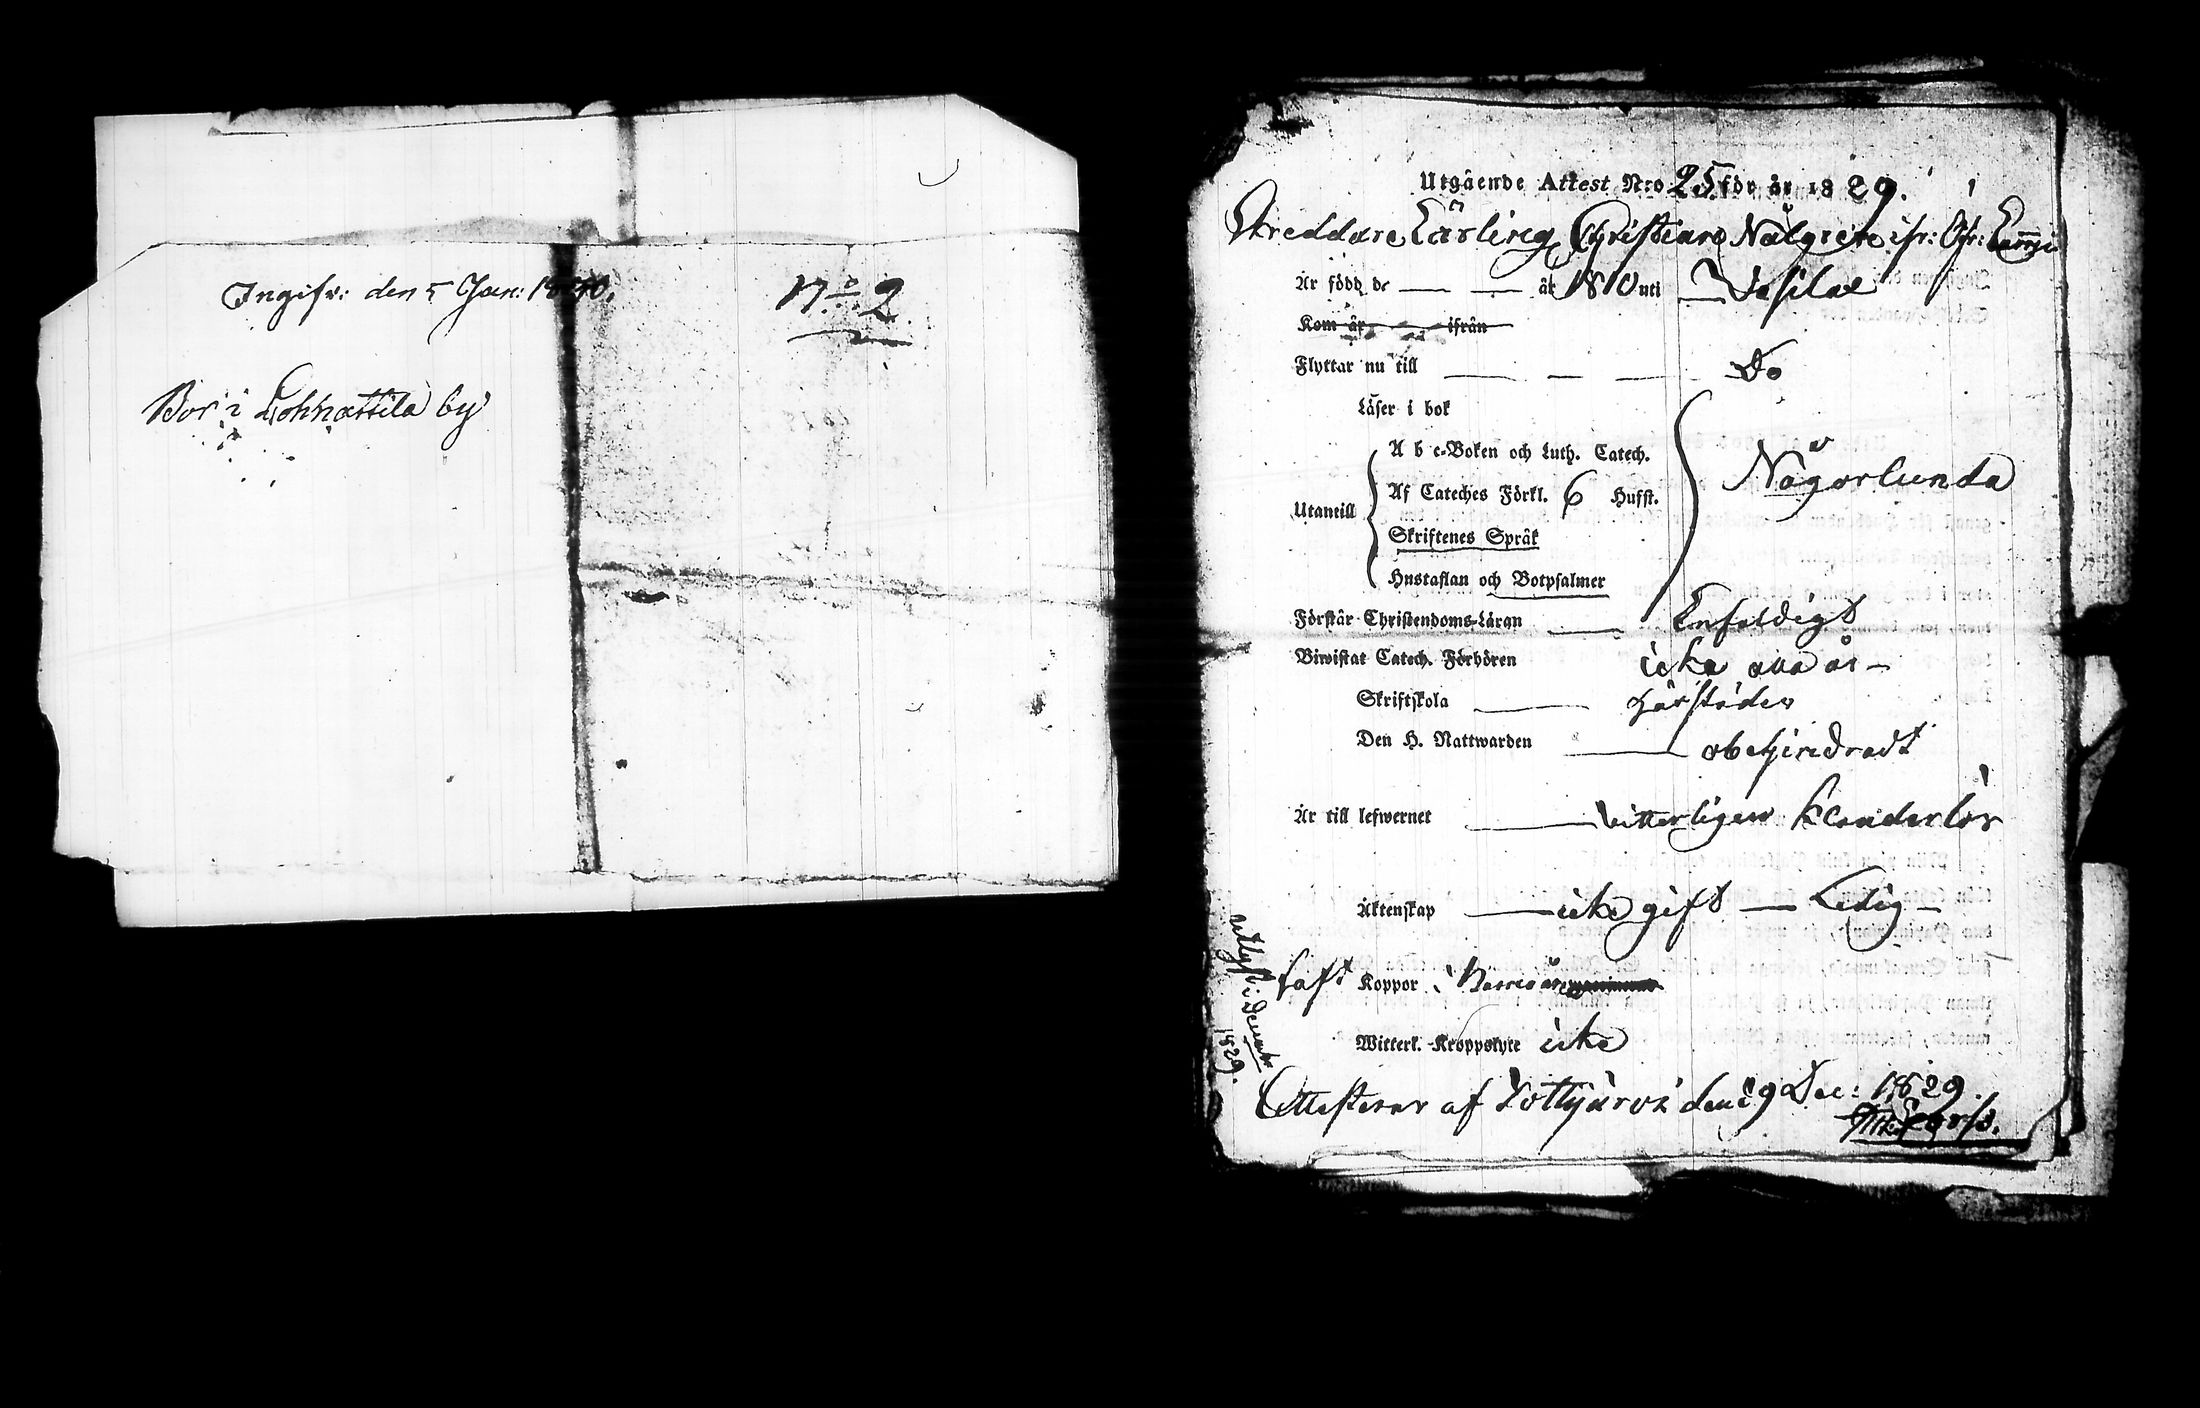 Ingifv: den 5 Jan: 1830.
N:o 2
Bor i Lohnattila by
Utgående Attest N:o 25 för år 1829.
Skreddare Lärling Christian Nälgren ifr: Ofr:
Är född de — — år 1810 uti — Vesilax
Kom år ifrån
Flyttar nu till — — — Do
Läser i bok
A b c-Boken och Luth. Catech.
Af Cateches Förkl. 6 Hufst.
Någorlunda
Utantill
Skriftenes Språk
Hustaflan och Botpsalmer
Förstår Christendoms-Läran — Enfaldigt
Biwistat Catech. Förhören icke alla år —
Skriftskola — härstädes
Den H. Nattwarden — obehindradt
Är till lefwernet — vitterligen klanderlös
Äktenskap — icke gift — Ledig —
haft Koppor i
Witterl. Kroppslyte icke
Attesterar af den 19 Dec: 1829.
utlyst i Decemb:
1829.